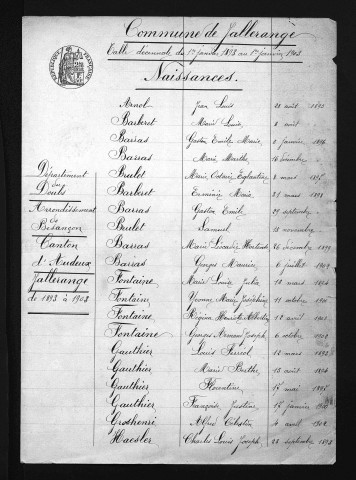 Commune de Jallerange
Table décennale du 1er janvier 1893 au 1er janvier 1903
Naissances.
RÉPUBLIQUE FRANÇAISE
Département
du
Doubs
Arrondissement
de
Besançon
Canton
d'Audeux
Jallerange
de 1893 à 1903
Arnol Jean Louis 28 août 1893
Barberet Marie Louise 2 août
Barras Gaston Emile Marie 2 janvier 1894
Barras Marie Marthe 16 novembre
Brulot Marie 2 mars 1895
Barberet Erminie Marie 21 mars 1898
Barras Gaston Emile 29 septembre
Brulet Samuel 15 novembre
Barras Marie Hortense 26 décembre 1899
Barras Georges Maurice 6 juillet
Fontaine Marie Louise Julia 12 mars 1894
Fontaine Yvonne Marie Joséphine 11 octobre
Fontaine Albertine 12 avril 1902
Fontaine Georges Armand Joseph 6 octobre
Gauthier Louis 12 mars 1893
Gauthier Marie Berthe 13 août 1894
Gauthier Florentine 15 mai 1895
Gauthier Françoise Justine 15 janvier
Groshenri Alfred Célestin 4 avril
Haesler Charles Louis Joseph 23 septembre 1893